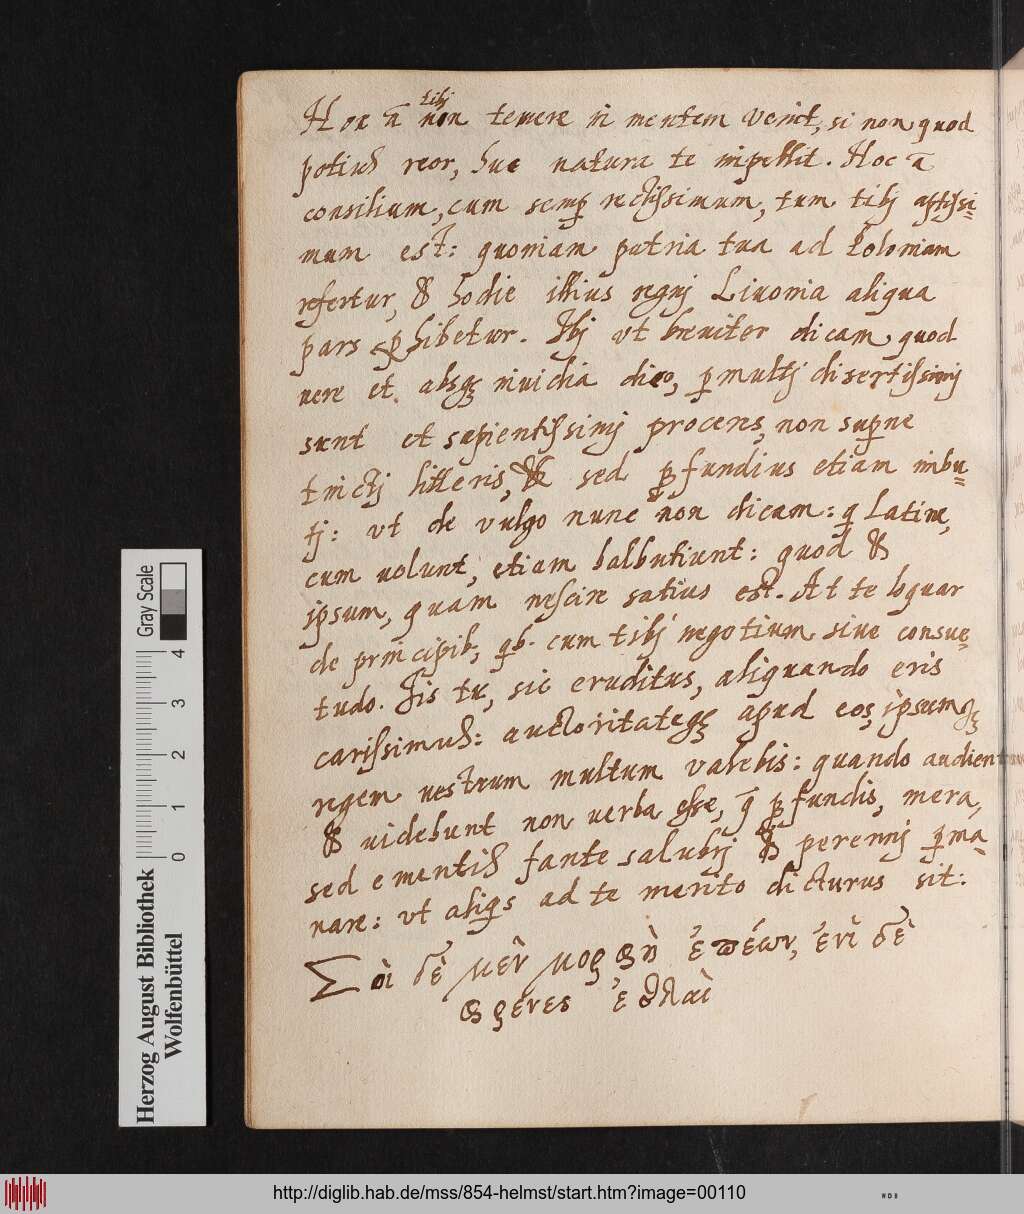 Hor ā tibj non temere in mentem venit, si non quod
potius reor, huc natura te impellit. Hoc ā
consilium, cum semp rectissimum, tum tibj aptissi=
mum est: quoniam patria tua ad Poloniam
refertur, & hodie illius regnj Liuonia aliqua
pars phibetur. Ibj vt breuiter dicam, quod
vere et absq; inuidia dico, pmultj disertissimj
sunt et sapientissimj proceres, non superne
tinctj litteris, sed pfundius etiam imbu=
tj: vt de vulgo nunc non dicam: q Latine,
cum uolunt, etiam balbutiunt: quod &
ipsum, quam nescire satius est. At te loquar
de principib; qb. cum tibj negotium siue consue=
tudo. Jis tu, sic eruditus, aliquando eris
carissimus: auctoritateq; apud eos, ipsumq;
regem uestrum multum valebis: quando audient
& uidebunt non uerba esse, q pfundis, mera,
sed e mentis fante salubrj & perennj pma=
nare: vt aliqs ad te merito dicturus sit:
Σοὶ δὲ μὲν μορφὴ ἐπέων, ἐνὶ δὲ
φρένες ἐσθλαὶ
Gray Scale
4
3
2
1
0
Herzog August Bibliothek
Wolfenbüttel
http://diglib.hab.de/mss/854-helmst/start.htm?image=00110